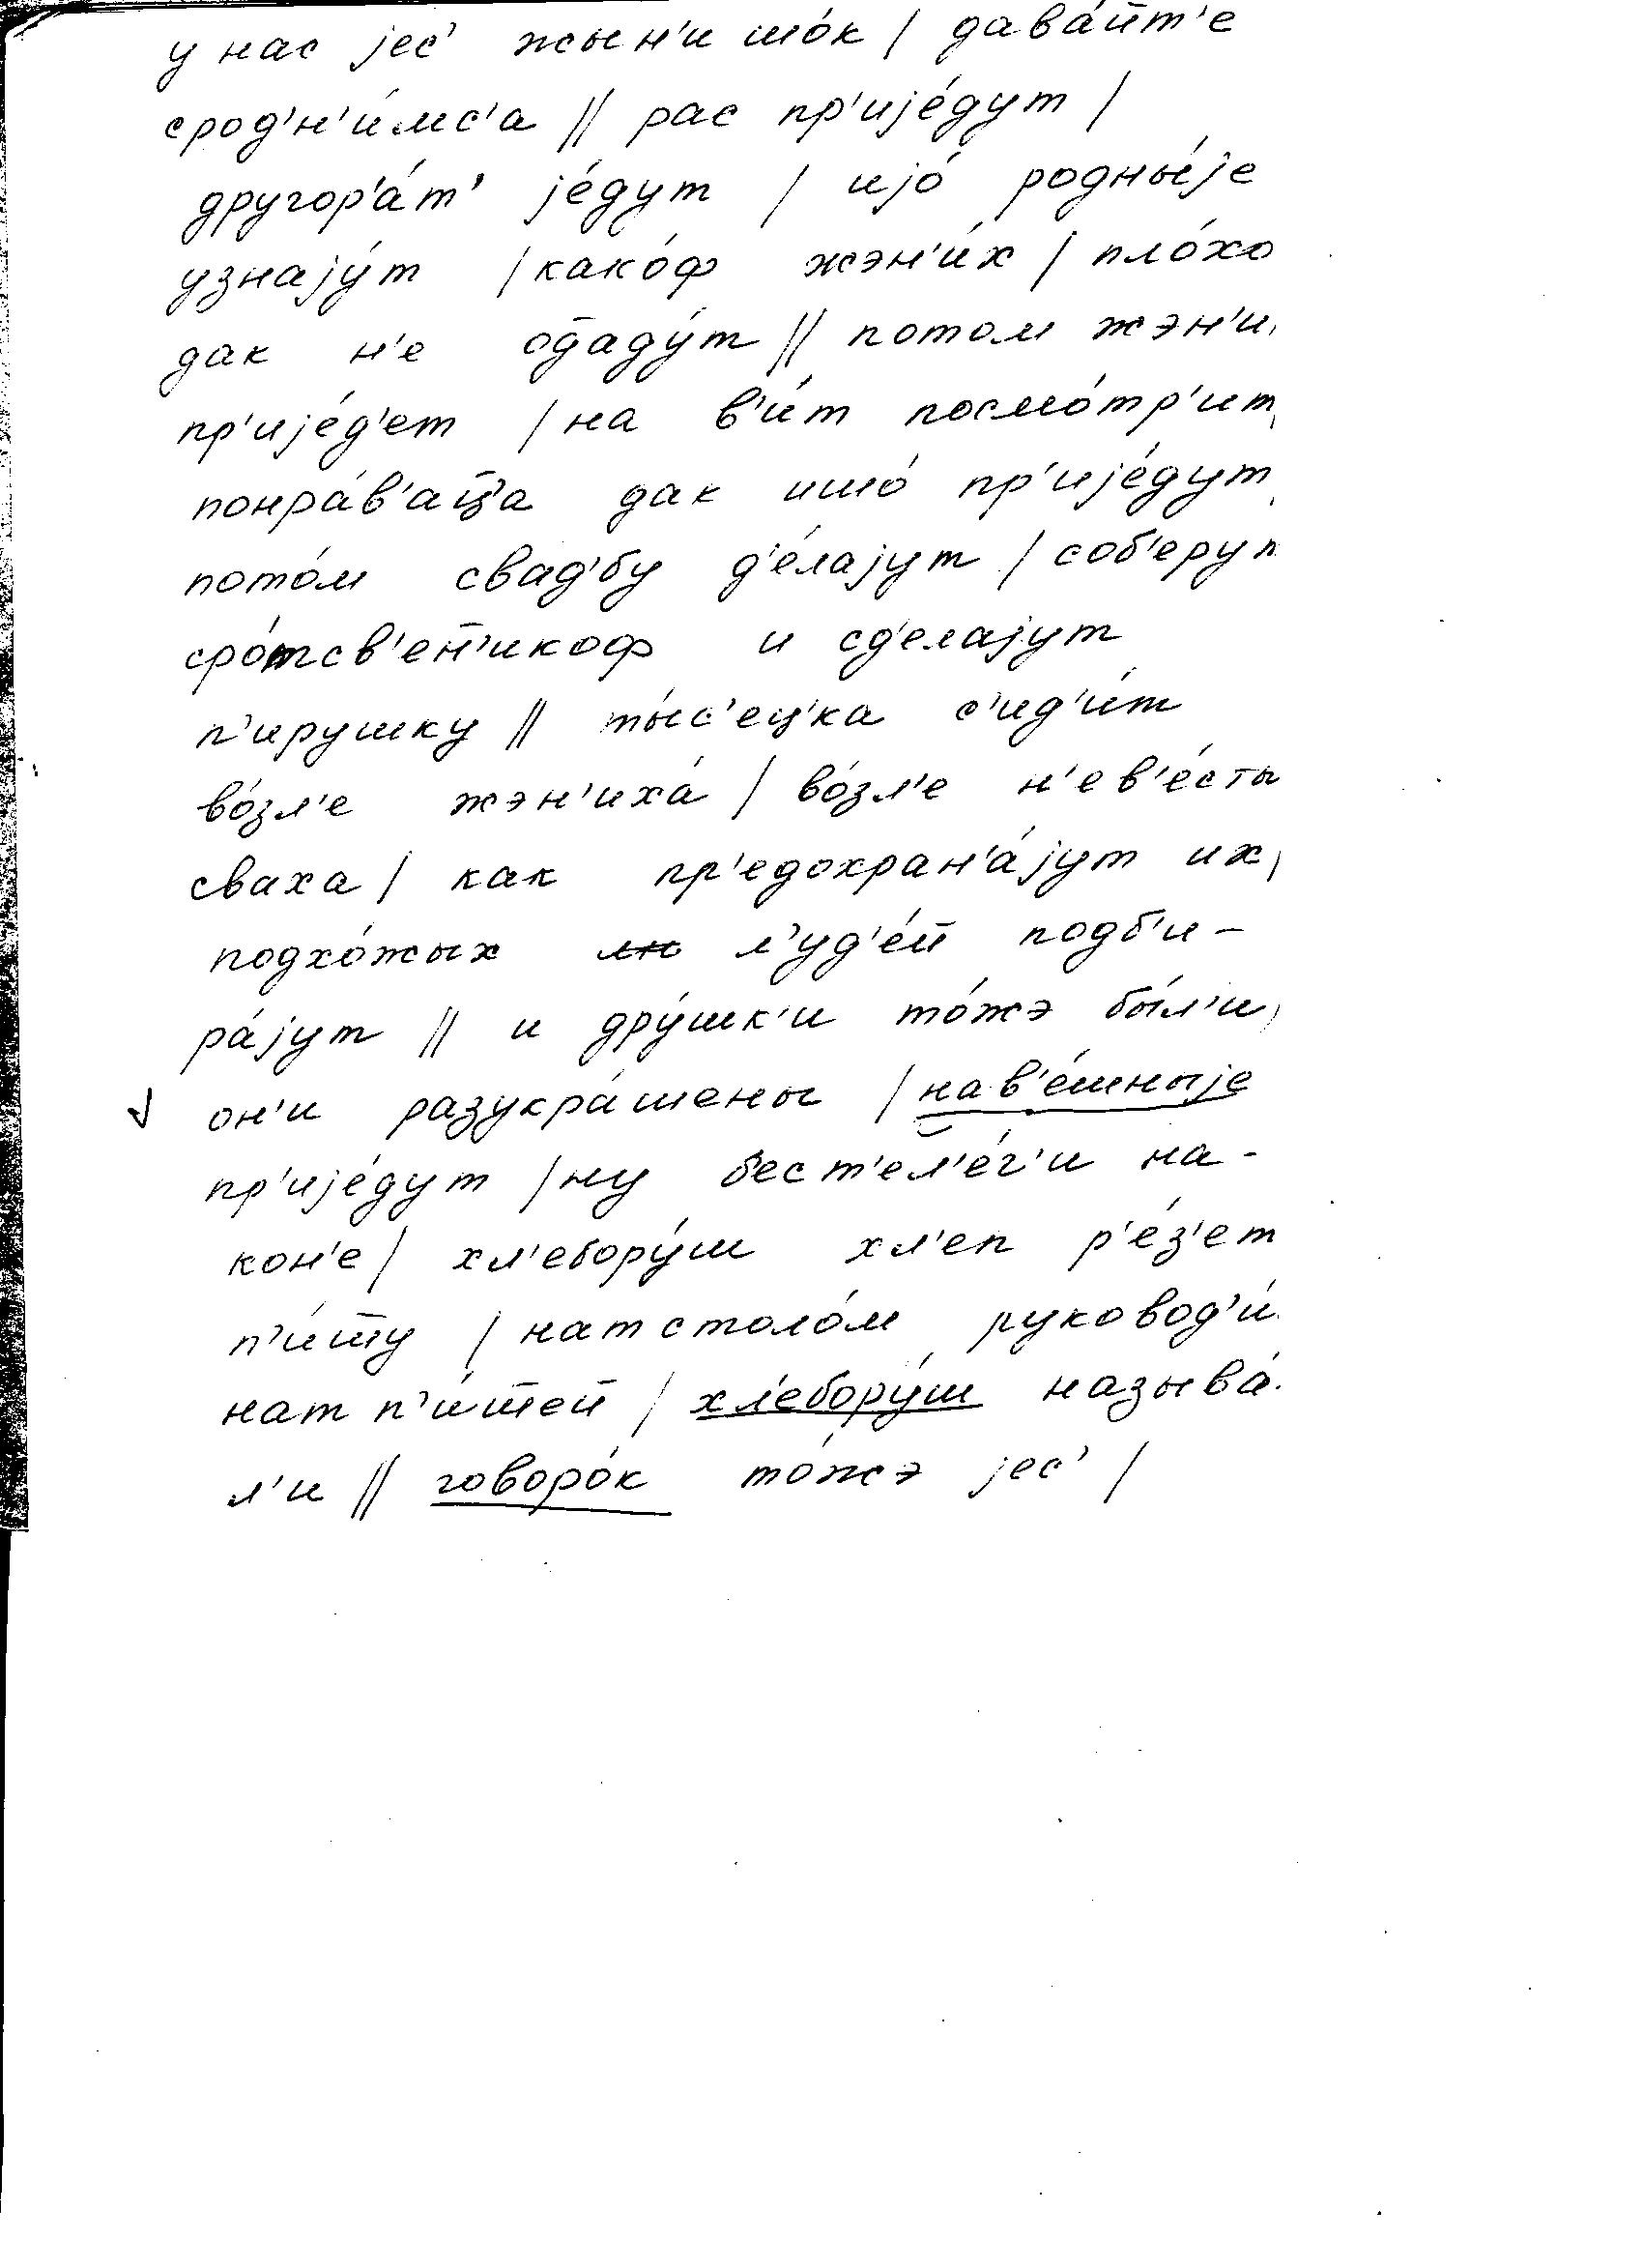 у нас jес' жын'и шо́к / дава́йт'е
срод'н'и́мс'а // рас пр'иjе́дут /
другор'а́т' jе́дут / иjо́ родны́jе
узнаjу́т / како́ф жэн'и́х / пло́хо
дак н'е од̄аду́т // потом жэн'и
пр'иjе́д'ет / на в'и́т посмо́тр'ит
понра́в'ац̄а дак ишо́ пр'иjе́дут
пото́м свад'бу д'е́лаjут / соб'ерут
сро́тсв'ен̄'икоф и сд'елаjут
п'ирушку // ты́с'ец'ка с'ид'и́т
во́зл'е жэн'иха́ / во́зл'е н'ев'е́сты
сваха / как пр'едохран'а́jут их /
подхо́жых л'уд'е́й подб'и-
ра́jут // и дру́шк'и то́жэ бы́л'и /
он'и разукра́шены / нав'е́шныjе
пр'иjе́дут / ну бест'ел'е́г'и на-
кон'е / хл'ебору́ш хл'еп р'е́з'ет
п'и́ш̄у / натстоло́м руковод'и́
нат п'и́ш̄ей / хл'ебору́ш называ́-
л'и // говоро́к то́жэ jес' /